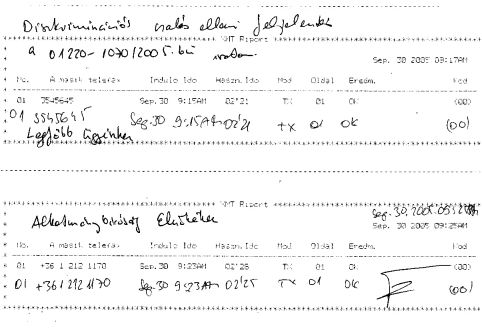 Diszkriminációs csalás elleni feljelentés
XMT Riport
a 01220-1070/2005. bü
Sep. 30 2005 09:17AM
No. A masit telefax Indulo Ido Haszn. Ido Mod Oldal Eredm. Kod
01 3545645 Sep.30 9:15AM 02'21 TX 01 OK (00)
01 3545645 Sep.30 9:15AM 02'21 TX 01 OK (00)
Legfőbb Ügyészhez
XMT Riport
Alkotmánybíróság Elnökéhez
Sep. 30 2005 09:25AM
No. A masit telefax Indulo Ido Haszn. Ido Mod Oldal Eredm. Kod
01 +36 1 212 1170 Sep.30 9:23AM 02'25 TX 01 OK (00)
01 +36 1 212 1170 Sep.30 9:23AM 02'25 TX 01 OK (00)